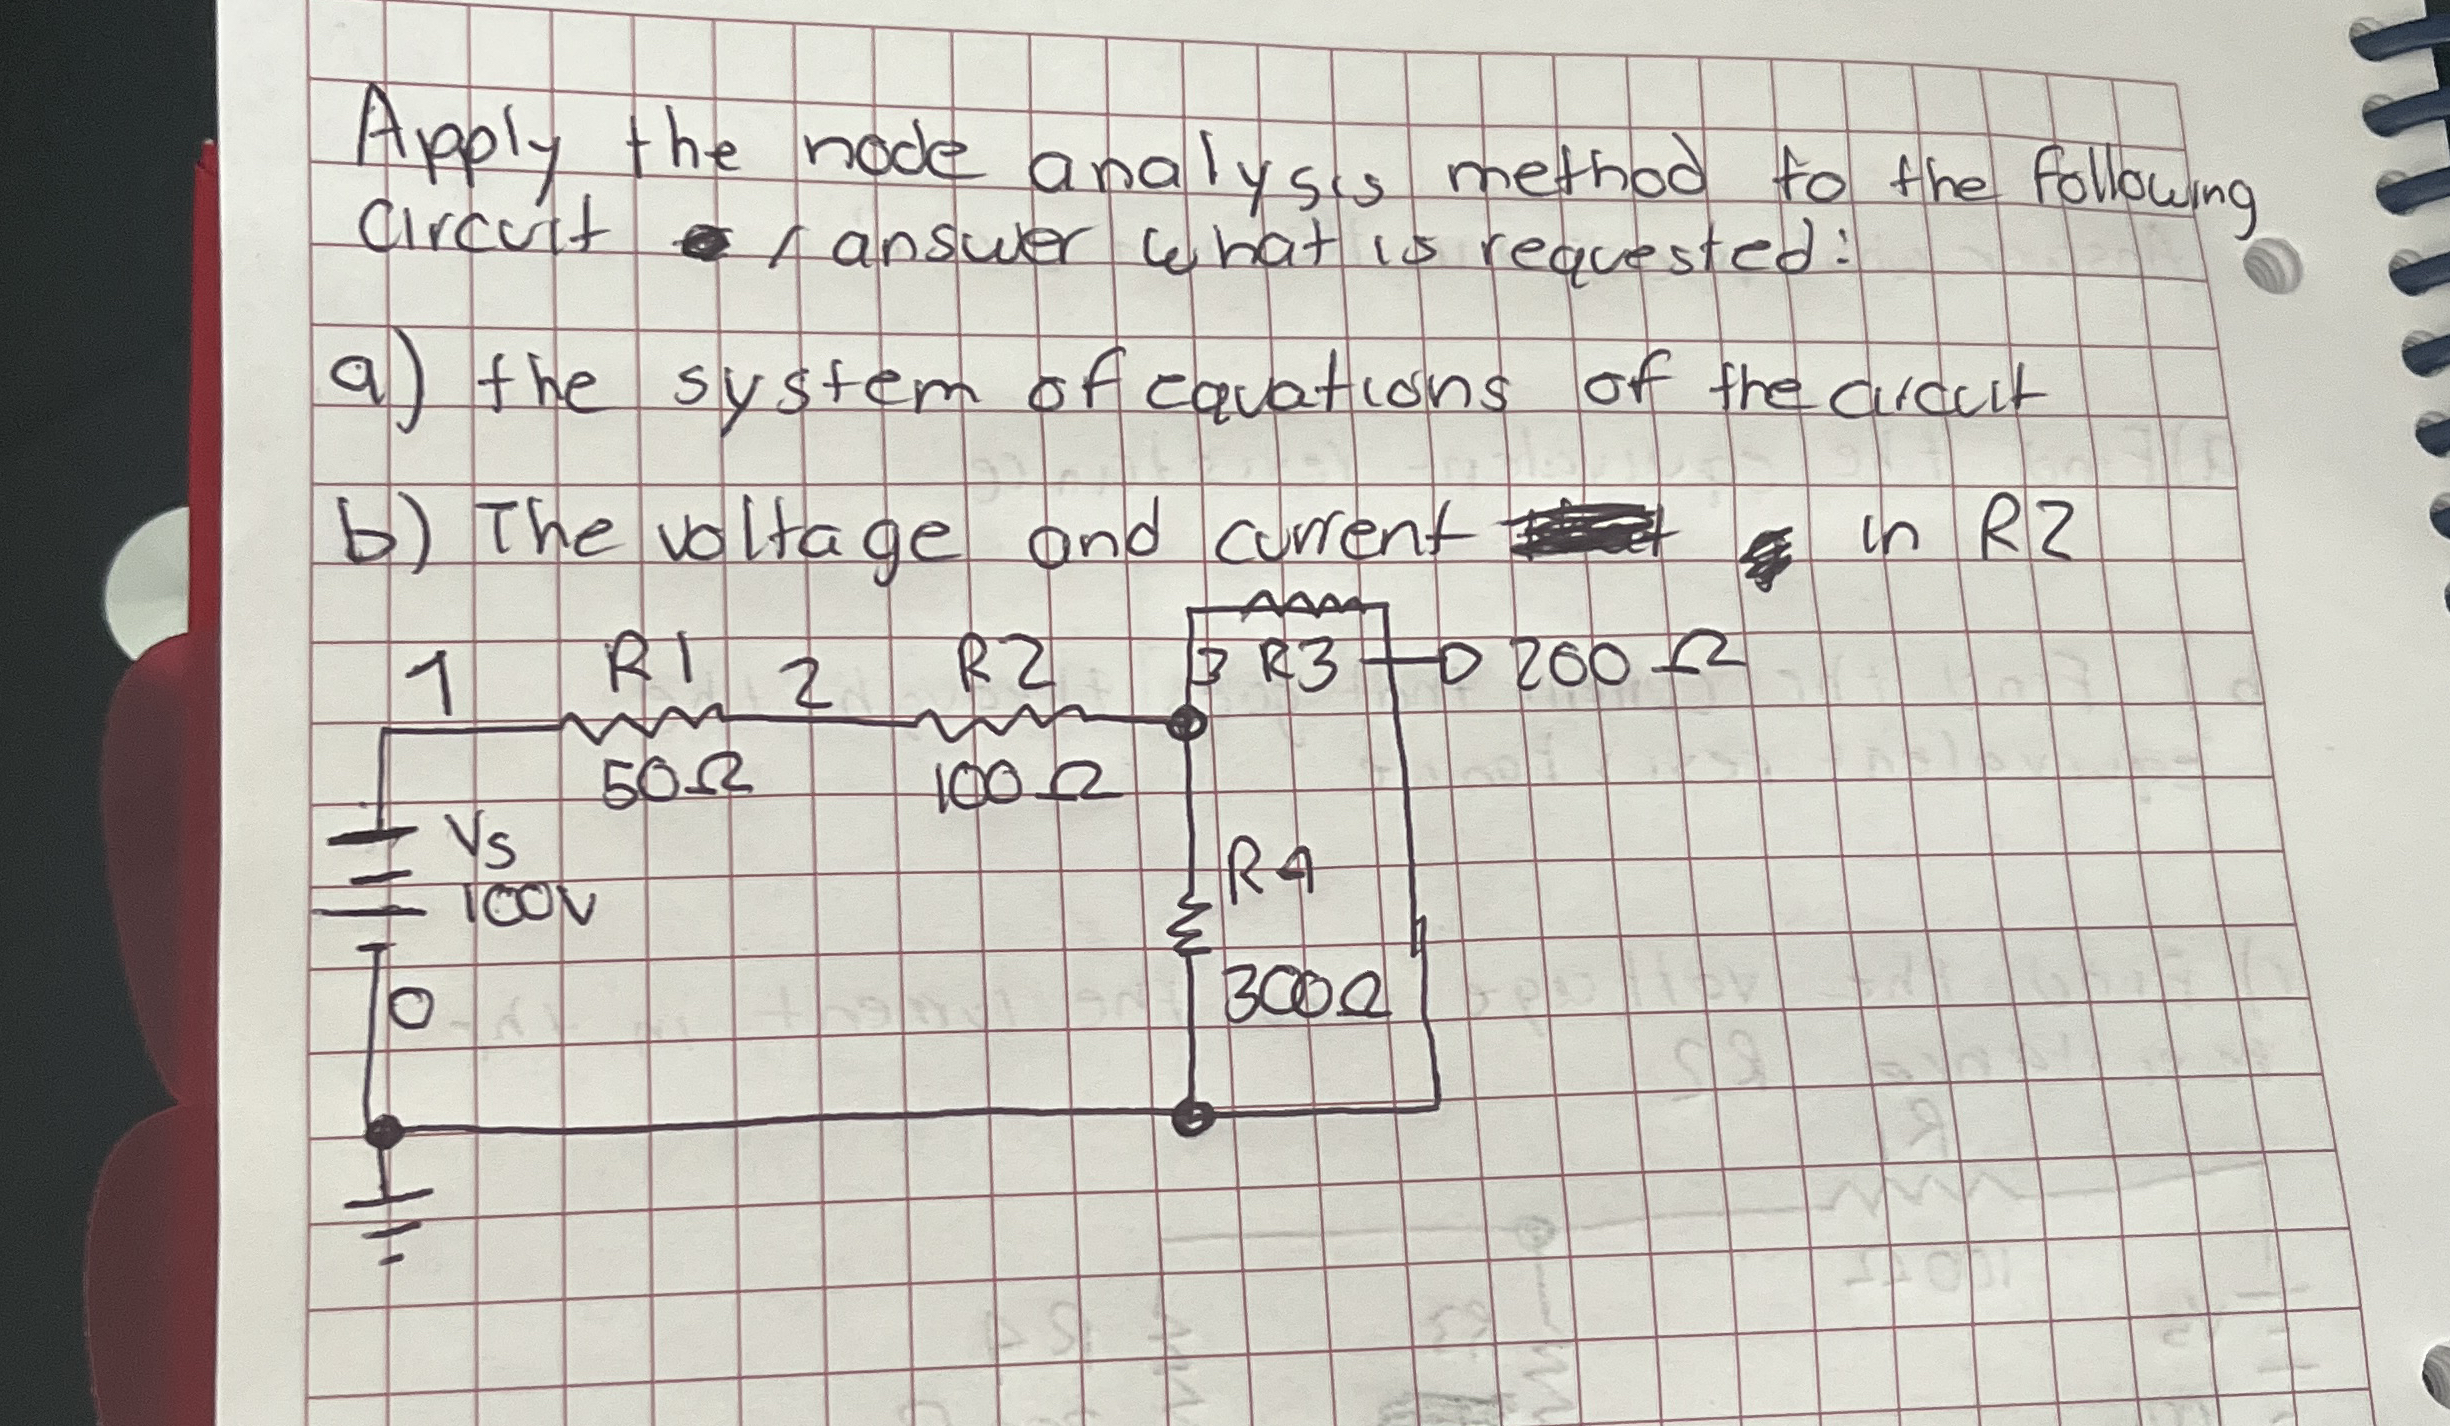 Apply the node analysis method to the following
circuit / answer what is requested:
a) the system of equations of the circuit
b) The voltage and current in R2
1 R1 2 R2 3 R3 200 Ω
50Ω 100 Ω
Vs
100V
R4
300Ω
0